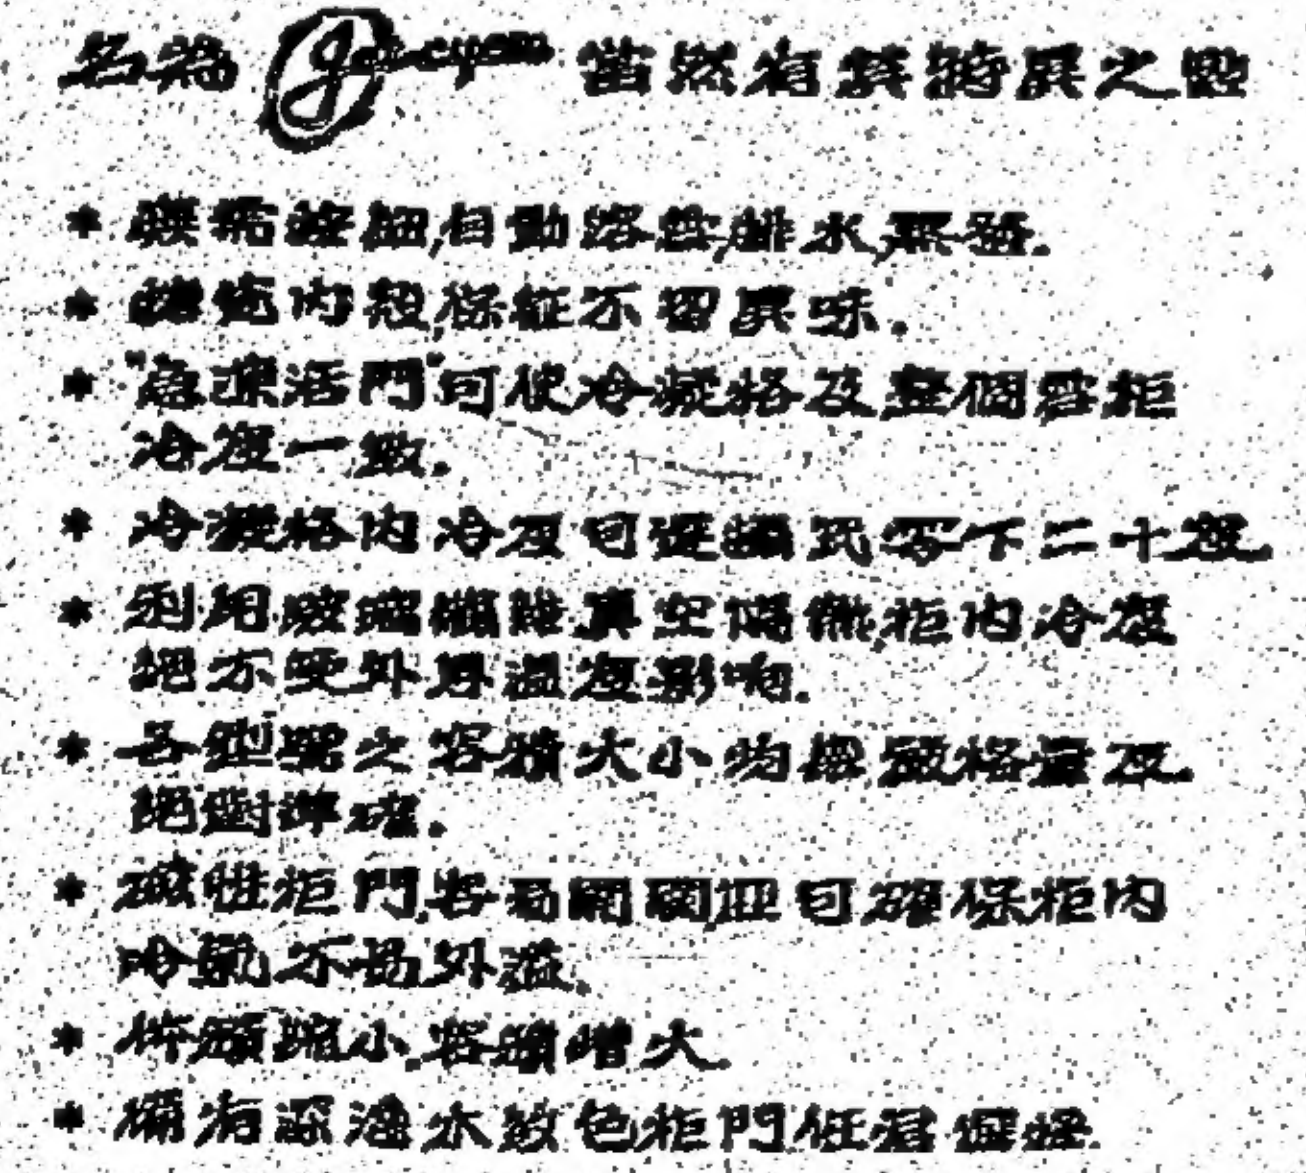 名為 當然有其特異之點
* 自動溶雪,排水,
* 內殼,保証不留異味.
* "急凍活門"可使冷凝格及整個雪柜
冷度一致.
* 冷凝格內冷度可達攝氏零下二十度.
* 利用玻璃纖維真空隔熱,柜內冷度
絕不受外界溫度影响.
* 各型號之容積大小均嚴格量及.
絕對準確.
* 磁性柜門,容易開關,並可確保柜內
冷氣不易外溢.
* 體積縮小,容積增大.
* 備有深淺木紋色柜門任君選擇.